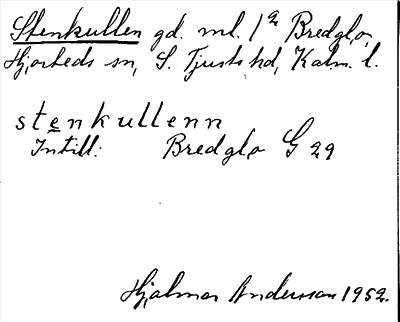 Stenkullen gd. ml. 1/2 Bredglo
Hjorteds sn, S. Tjusts hd, Kalm. l.
stenkullenn
Intill: Bredglo G 29
Hjalmar Andersson 1952.